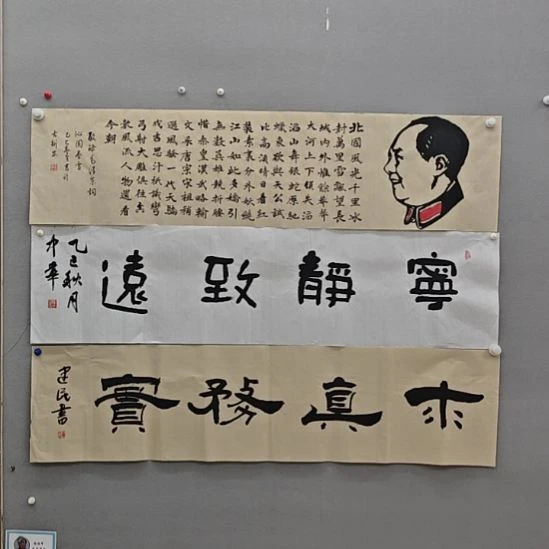 北國風光千里冰
封萬里雪飄望長
城內外惟餘莽莽
大河上下頓失滔
滔山舞銀蛇原馳
蠟象欲與天公試
比高須晴日看紅
裝素裹分外妖嬈
江山如此多嬌引
無數英雄競折腰
惜秦皇漢武略輸
文采唐宗宋祖稍
遜風騷一代天驕
成吉思汗祇識彎
弓射大雕俱往矣
數風流人物還看
今朝
敬錄毛澤東詞
沁園春雪
寧靜致遠
乙巳秋月
中華
求真務實
建民書